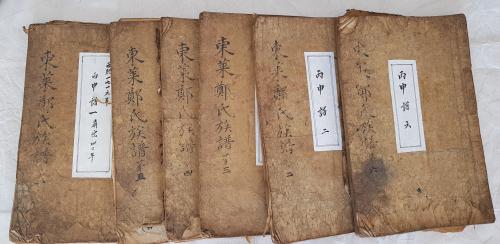 東萊鄭氏族譜
丙申譜一
東萊鄭氏族譜
五
東萊鄭氏族譜
四
東萊鄭氏族譜
三
東萊鄭氏族譜
二
丙申譜二
鄭氏族譜
丙申譜六